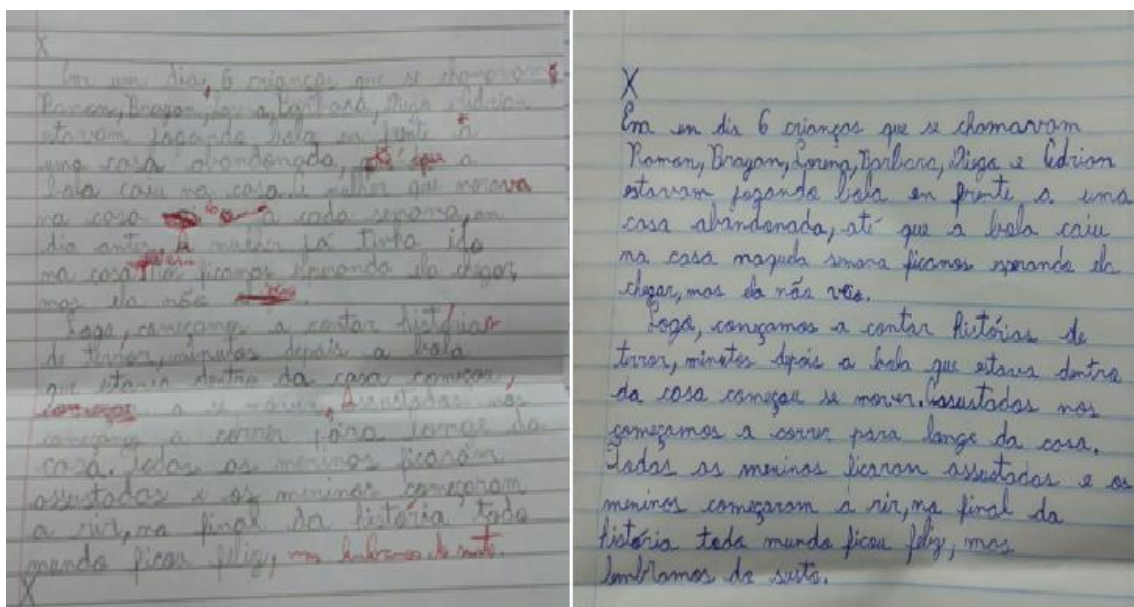 X
Em um dia, 6 crianças que se chamavam
Ramon, Brayan, Lorena, Barbara, Diego Adrian
estavam jogando bola em frente a
uma casa abandonada, até que a
bola caiu na casa. A mulher que morava
na casa a cada semana, um
dia antes, a mulher já tinha ido
na casa, ficamos esperando ela chegar,
mas ela não
Logo, começamos a contar histórias
de terror, minutos depois a bola
que estava dentro da casa começou,
a se mover, Assustados nos
começamos a correr para longe da
casa. Todos os meninos ficaram
assustados e os meninos começaram
a rir, no final da história todo
mundo ficou feliz, mas lembramos do susto.
X
X
Em un dia 6 crianças que se chamarvam
Ramon, Brayan, Lorena, Barbara, Diego e Adrian
estavam jogando bola en frente a uma
casa abandonada, até que a bola caiu
na casa naquela semana ficamos esperando ela
chegar, mas ela não veio.
Logo, conçamos a contar histórias de
terror, minutos depois a bola que estava dentro
da casa começou se mover. Assustados nos
começamos a correr para longe da casa.
Todos os meninos ficaram assustados e os
meninos começaram á rir, no final da
história todo mundo ficou feliz, mas
lembramos do susto.